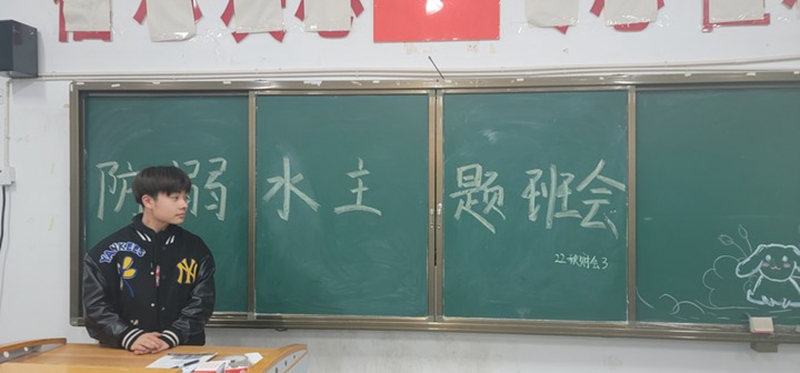 防溺水主题班会
22级财会3
YANKEES
NY